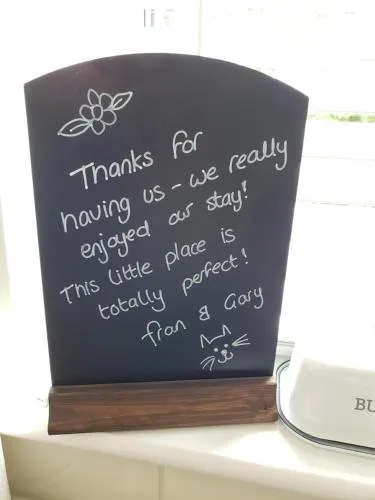 Thanks for
having us - we really
enjoyed our stay!
This little place is
totally perfect!
fran & Gary
BU